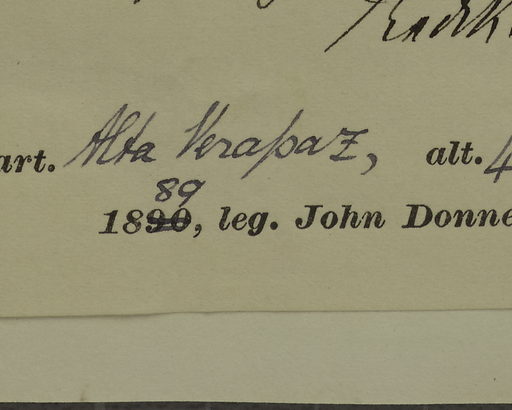 art. Alta Verapaz, alt. 4
89
1890, leg. John Donne